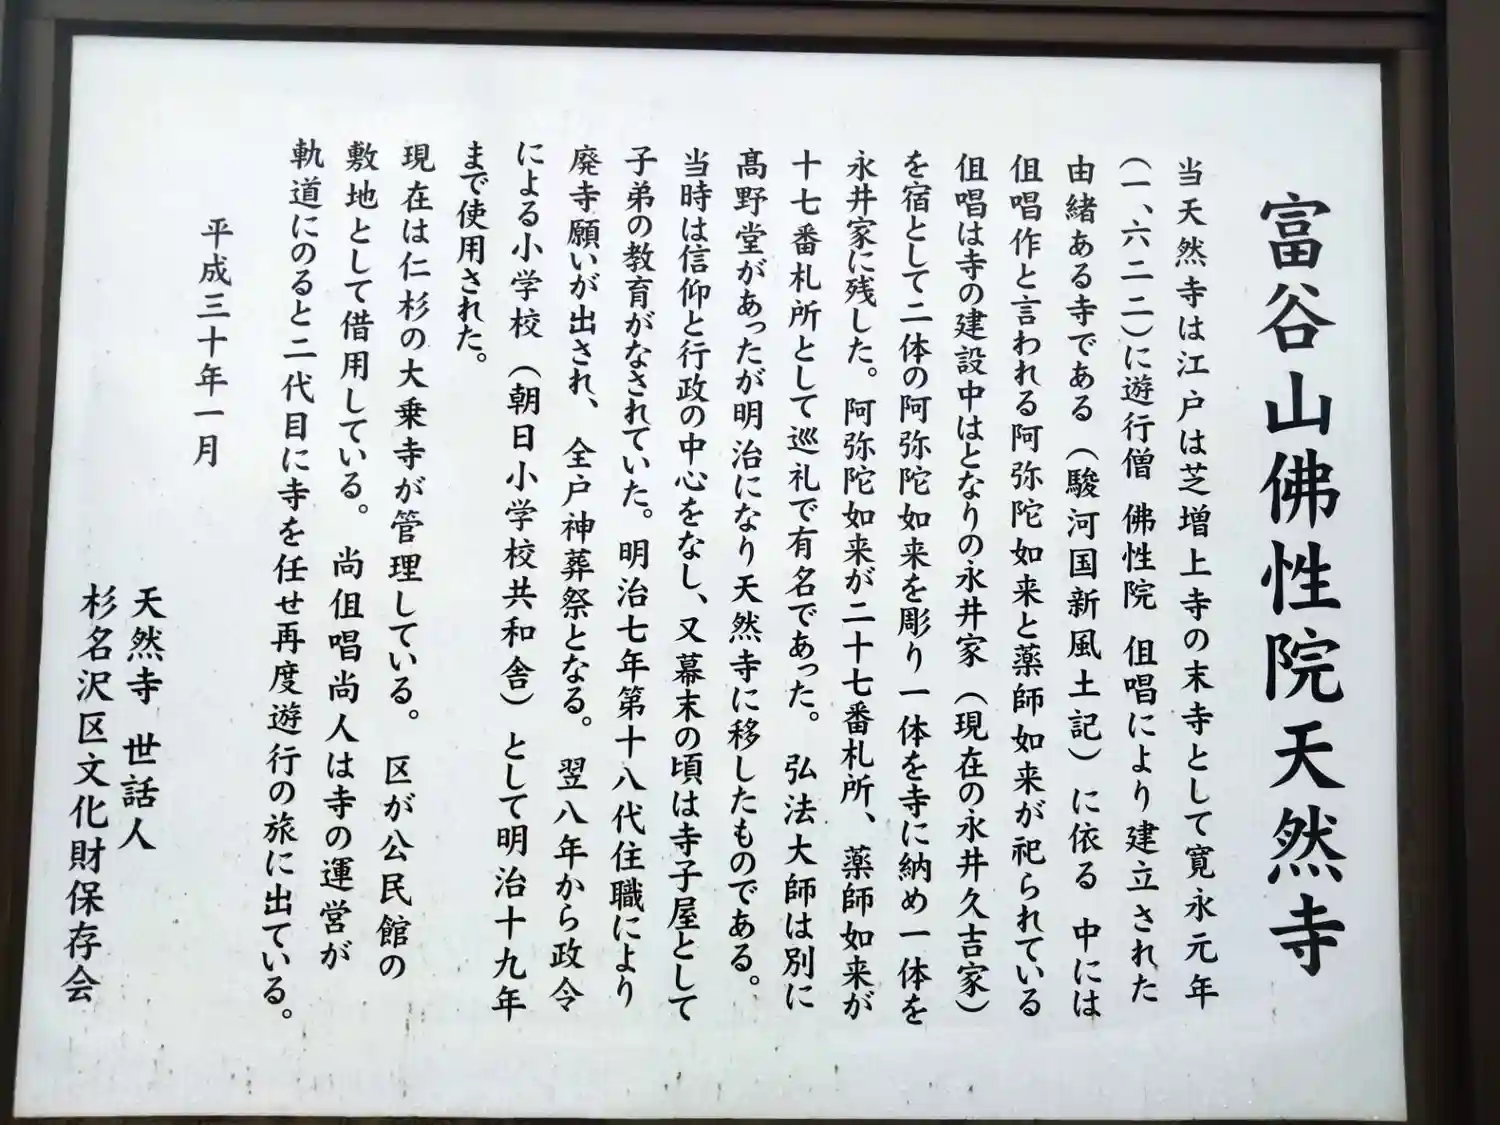 富谷山佛性院天然寺
当天然寺は江戸は芝増上寺の末寺として寛永元年
(一、六二二)に遊行僧 佛性院 但唱により建立された
由緒ある寺である(駿河国新風土記)に依る 中には
但唱作と言われる阿弥陀如来と薬師如来が祀られている
但唱は寺の建設中はとなりの永井家(現在の永井久吉家)
を宿として二体の阿弥陀如来を彫り一体を寺に納め一体を
永井家に残した。阿弥陀如来が二十七番札所、薬師如来が
十七番札所として巡礼で有名であった。弘法大師は別に
髙野堂があったが明治になり天然寺に移したものである。
当時は信仰と行政の中心をなし、又幕末の頃は寺子屋として
子弟の教育がなされていた。明治七年第十八代住職により
廃寺願いが出され、全戸神葬祭となる。翌八年から政令
による小学校(朝日小学校共和舎)として明治十九年
まで使用された。
現在は仁杉の大乗寺が管理している。区が公民館の
敷地として借用している。尚但唱尚人は寺の運営が
軌道にのると二代目に寺を任せ再度遊行の旅に出ている。
平成三十年一月
天然寺 世話人
杉名沢区文化財保存会